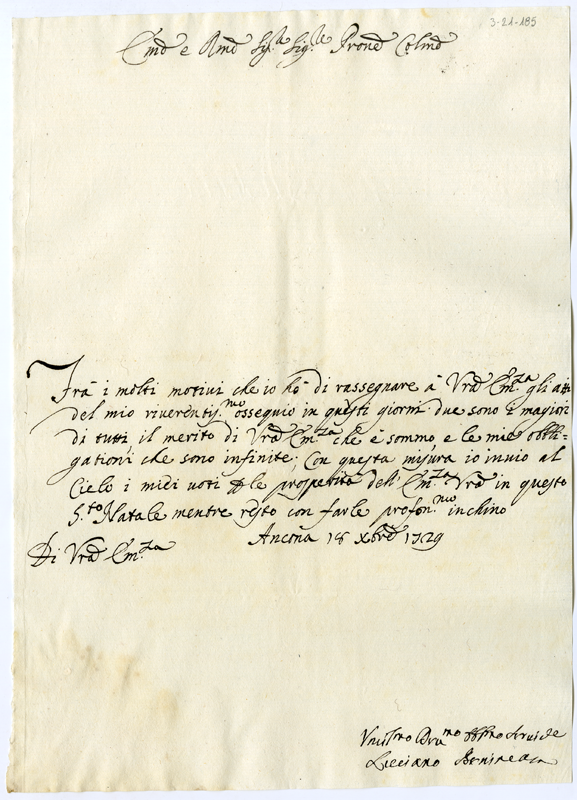 3-21-185
Emo e Rmo Sig.re Sig.re Prone Colmo
Frà i molti motivi che io hò di rassegnare à Vrã Em.za gli atti
del mio riverentis.mo ossequio in questi giorni due sono i magiori
di tutti il merito di Vrã Em.za che è sommo e le mie obbli=
gationi che sono infinite; Con questa misura io invio al
Cielo i miei voti p le prosperità dell' Em.za Vrã in questo
S.to Natale mentre resto con farle profon.mo inchino
Ancona 18 Xbre 1729
Di Vrã Em.za
Vmilmo Deu.mo Obbmo
Luciano